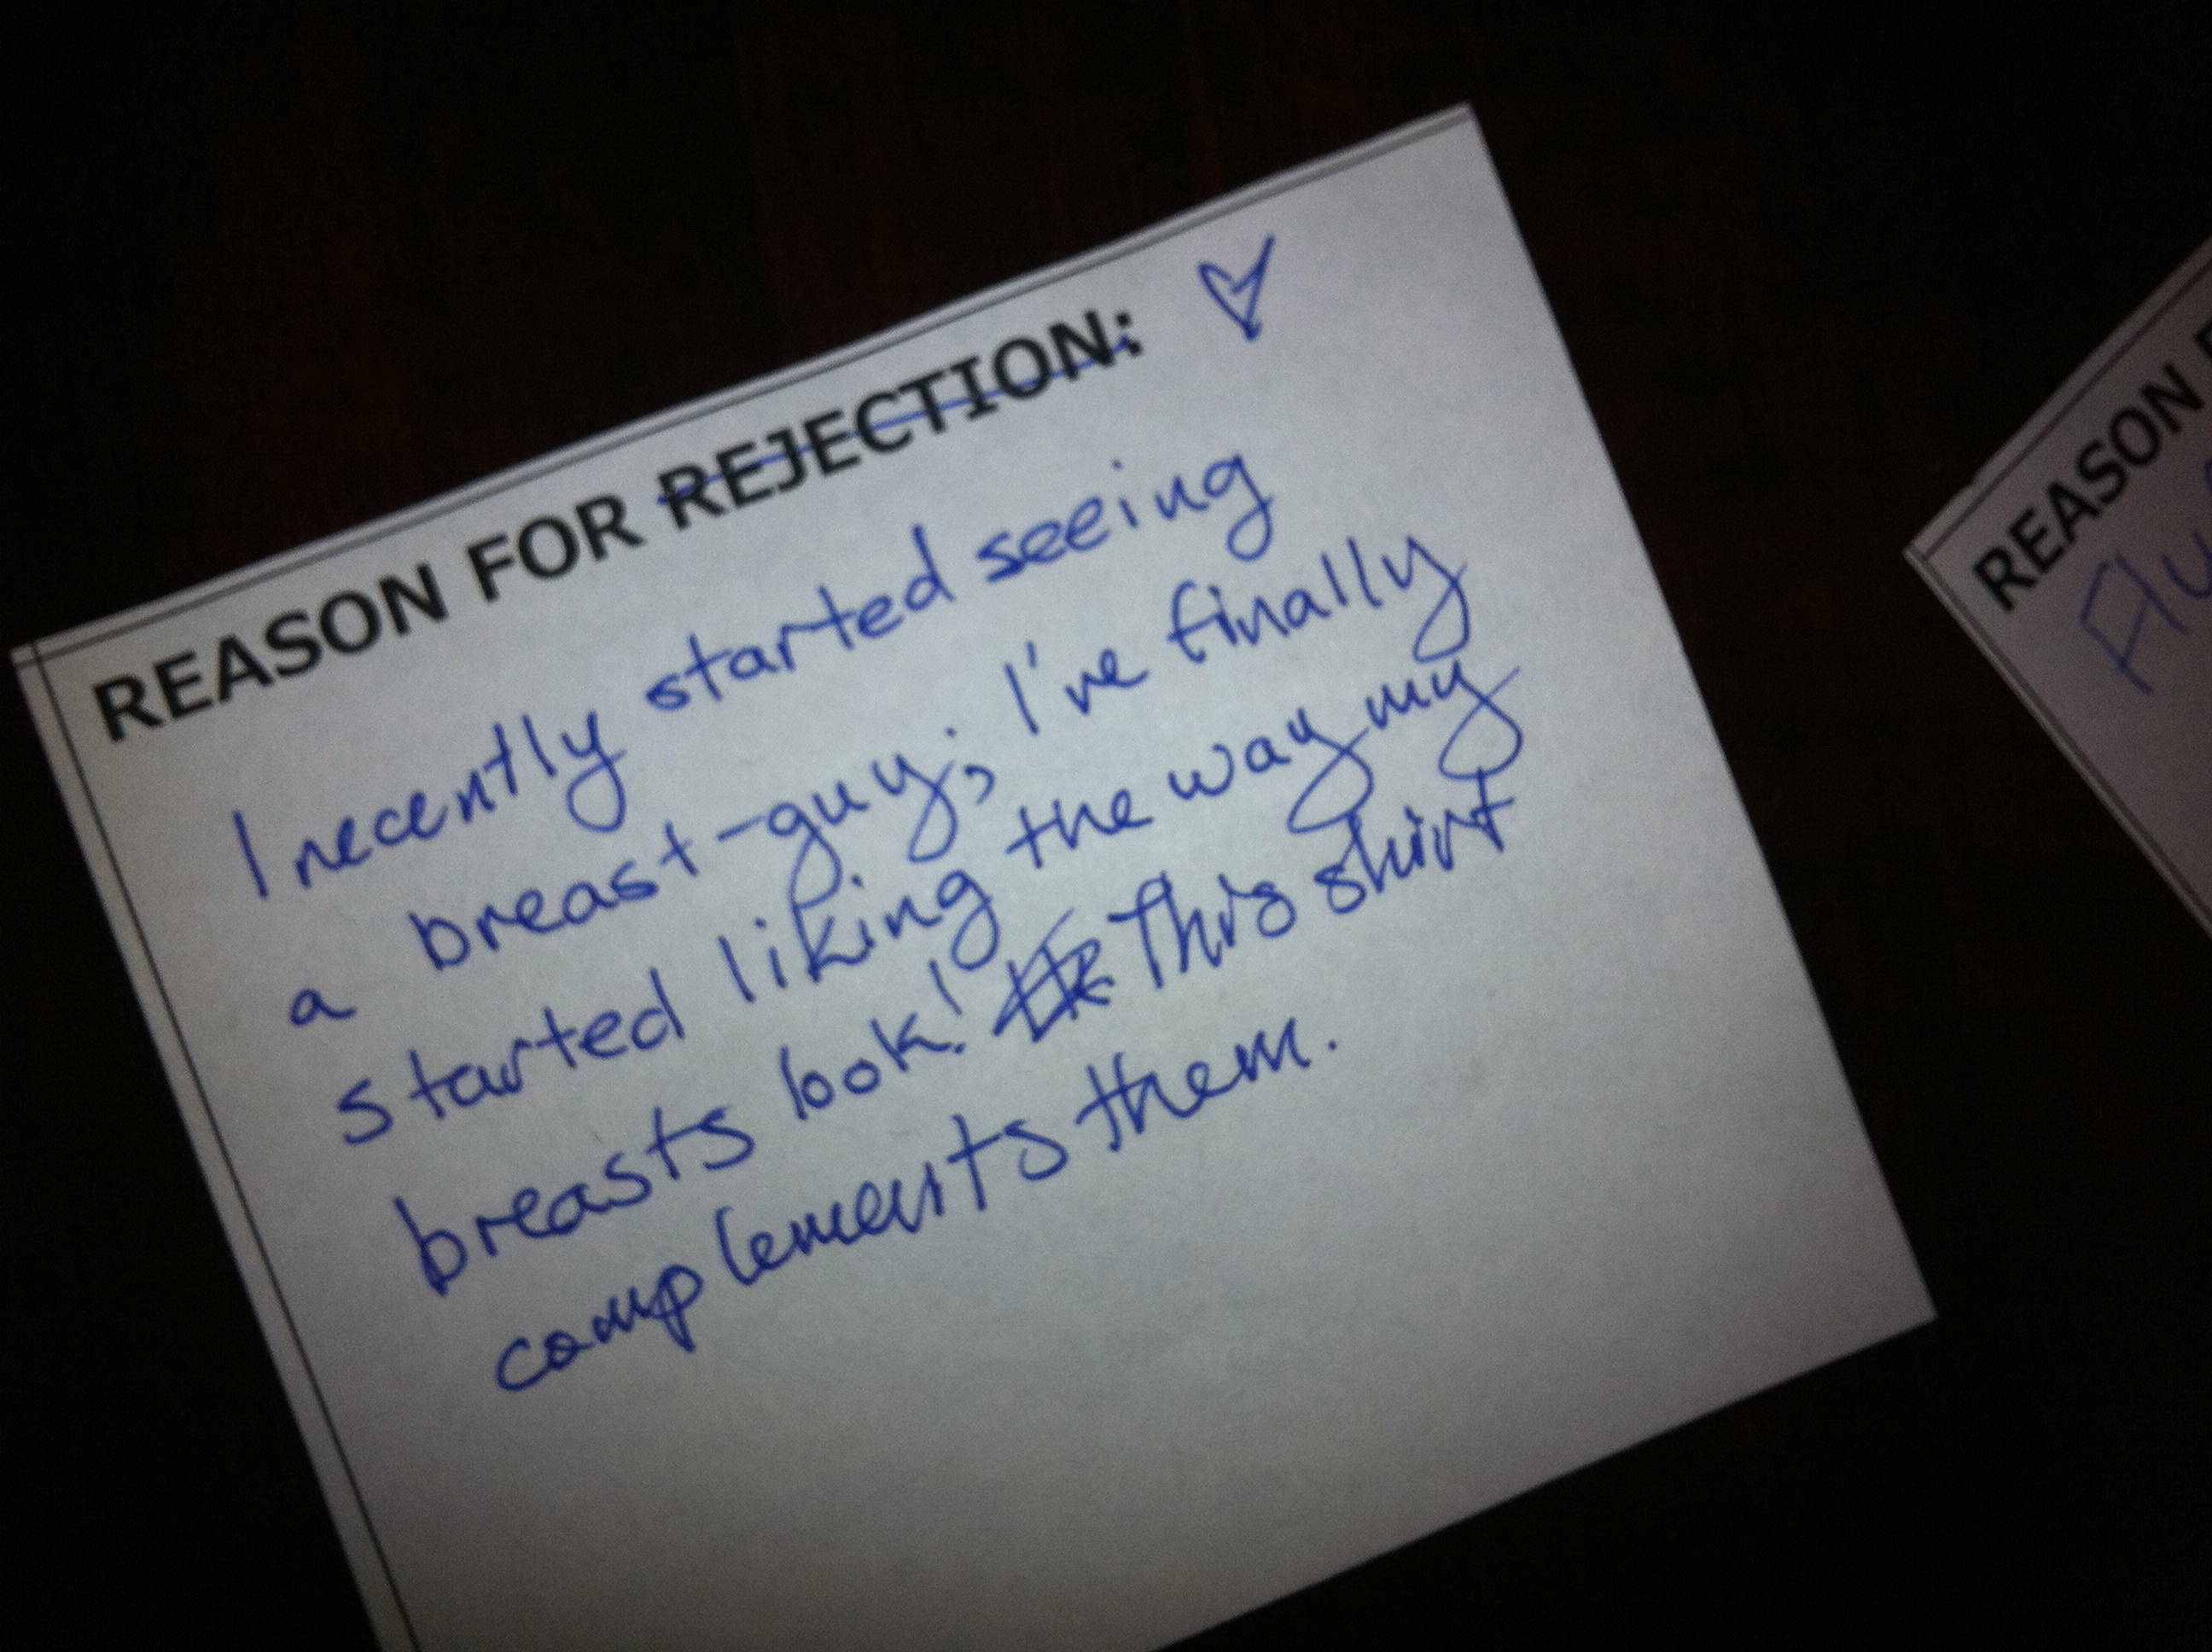 REASON FOR REJECTION: ♡
I recently started seeing
a breast-guy; I've finally
started liking the way my
breasts look! This shirt
complements them.
REASON